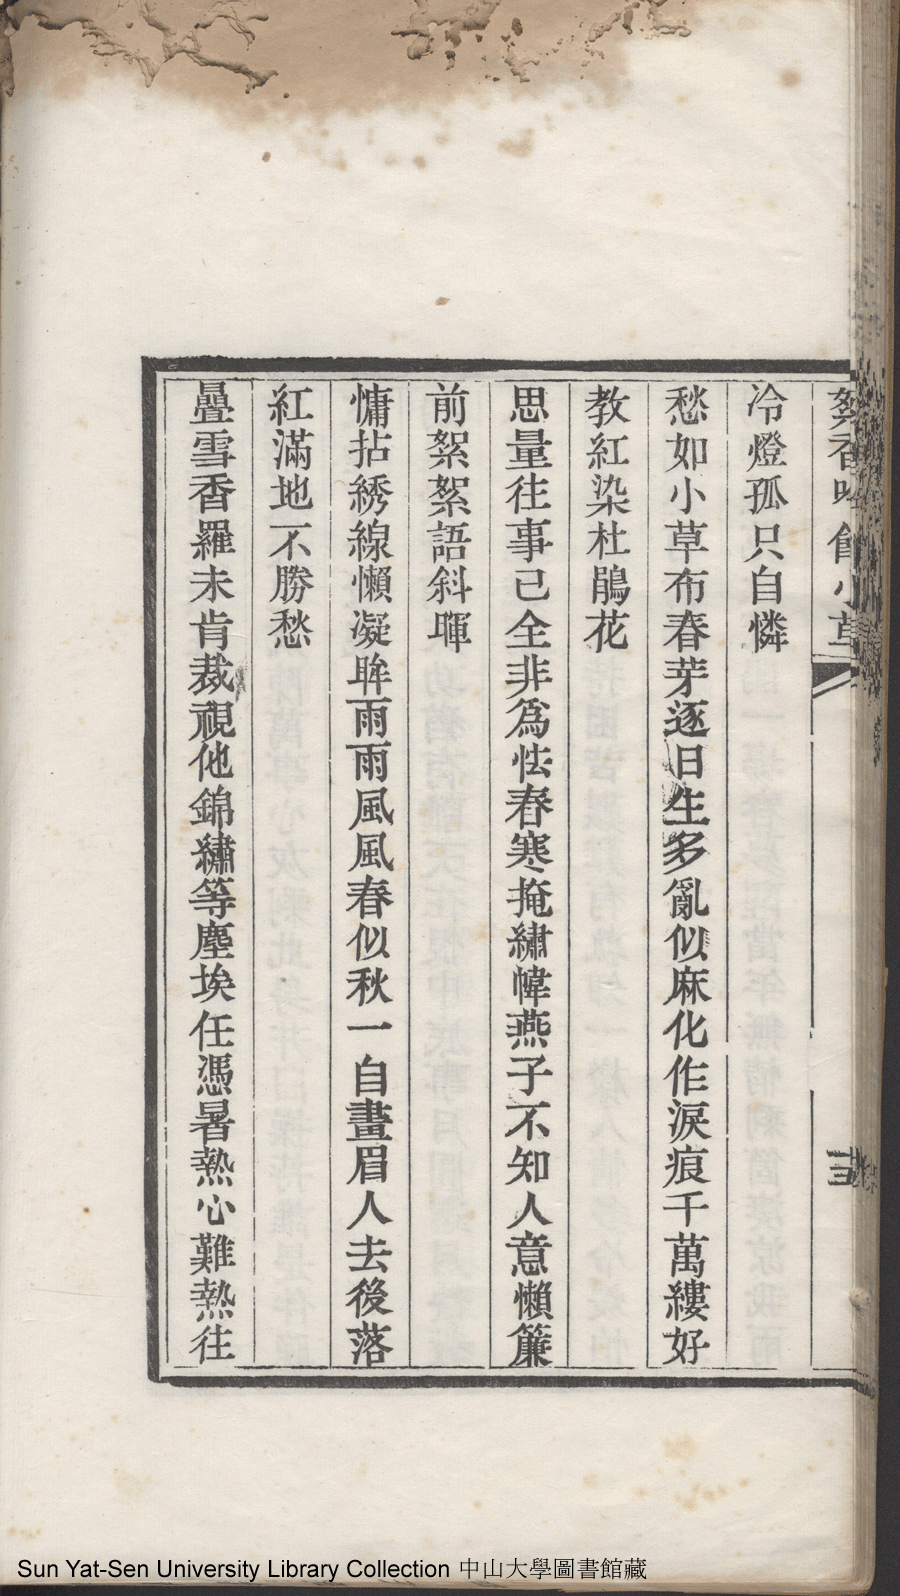 絮香吟館小草
冷燈孤只自憐
愁如小草布春芽逐日生多亂似麻化作淚痕千萬縷好
教紅染杜鵑花
思量往事已全非爲怯春寒掩繡幃燕子不知人意懶簾
前絮絮語斜暉
慵拈綉線懶凝眸雨雨風風春似秋一自畫眉人去後落
紅滿地不勝愁
疊雪香羅未肯裁視他錦繡等塵埃任憑暑熱心難熱往
Sun Yat-Sen University Library Collection 中山大學圖書館藏